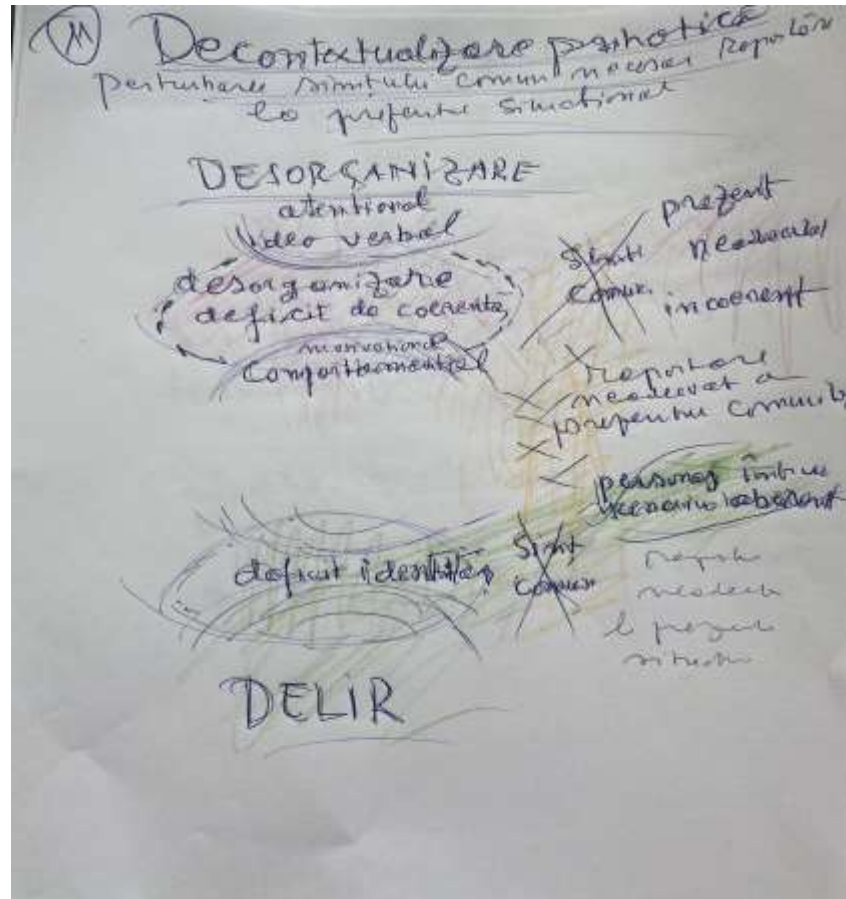 (M) Decontextualizare psihotică
Perturbarea simtului comun necesar Raportării
la prezentul situational
DESORGANIZARE
atentional
ideo verbal
desorganizare
deficit de coerență
motivational
Comportamental
prezent
Simt neadecvat
Comun. incoerent
Raportare
neadecvat a
prezentului comunit
personaj într-un
scenariu aberant
deficit identitar
Simț
Comun
DELIR